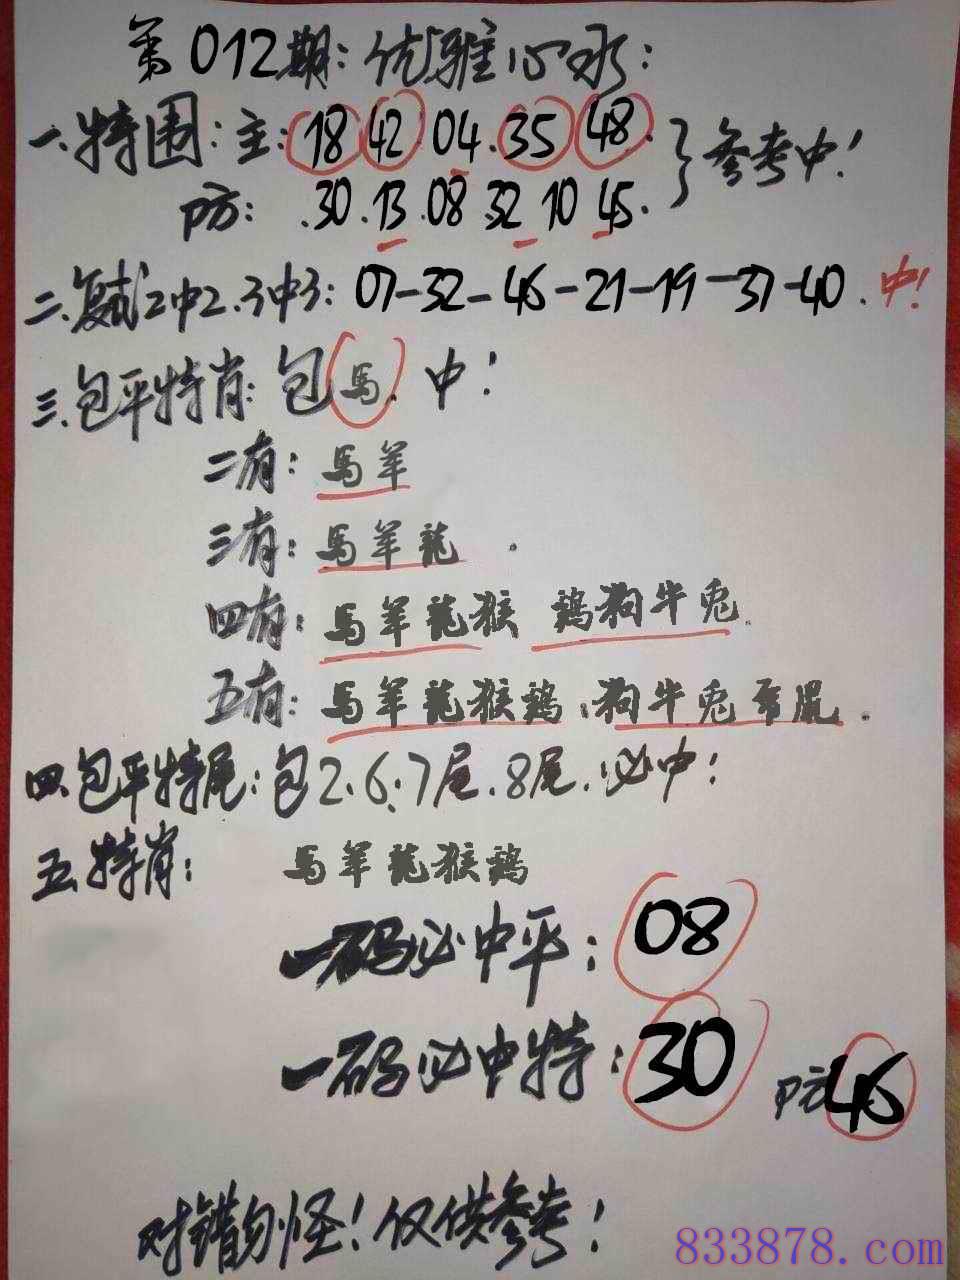 第012期：优雅心水：
一.特围：主：18 42 04.35 48.
防：.30.13.08 32 10 45.
}参考中！
二.复试2中2.3中3：07-32-46-21-19-37-40.中！
三.包平特肖：包馬.中！
二有：馬羊
三有：馬羊龍.
四有：馬羊龍猴 鷄狗牛兎.
五有：馬羊龍猴鷄.狗牛兎 鼠.
四.包平特尾：包2.6.7尾.8尾.必中！
五.特肖：馬羊龍猴鷄
一码必中平：08
一码必中特：30 防46
对错勿怪！仅供参考！
833878.com